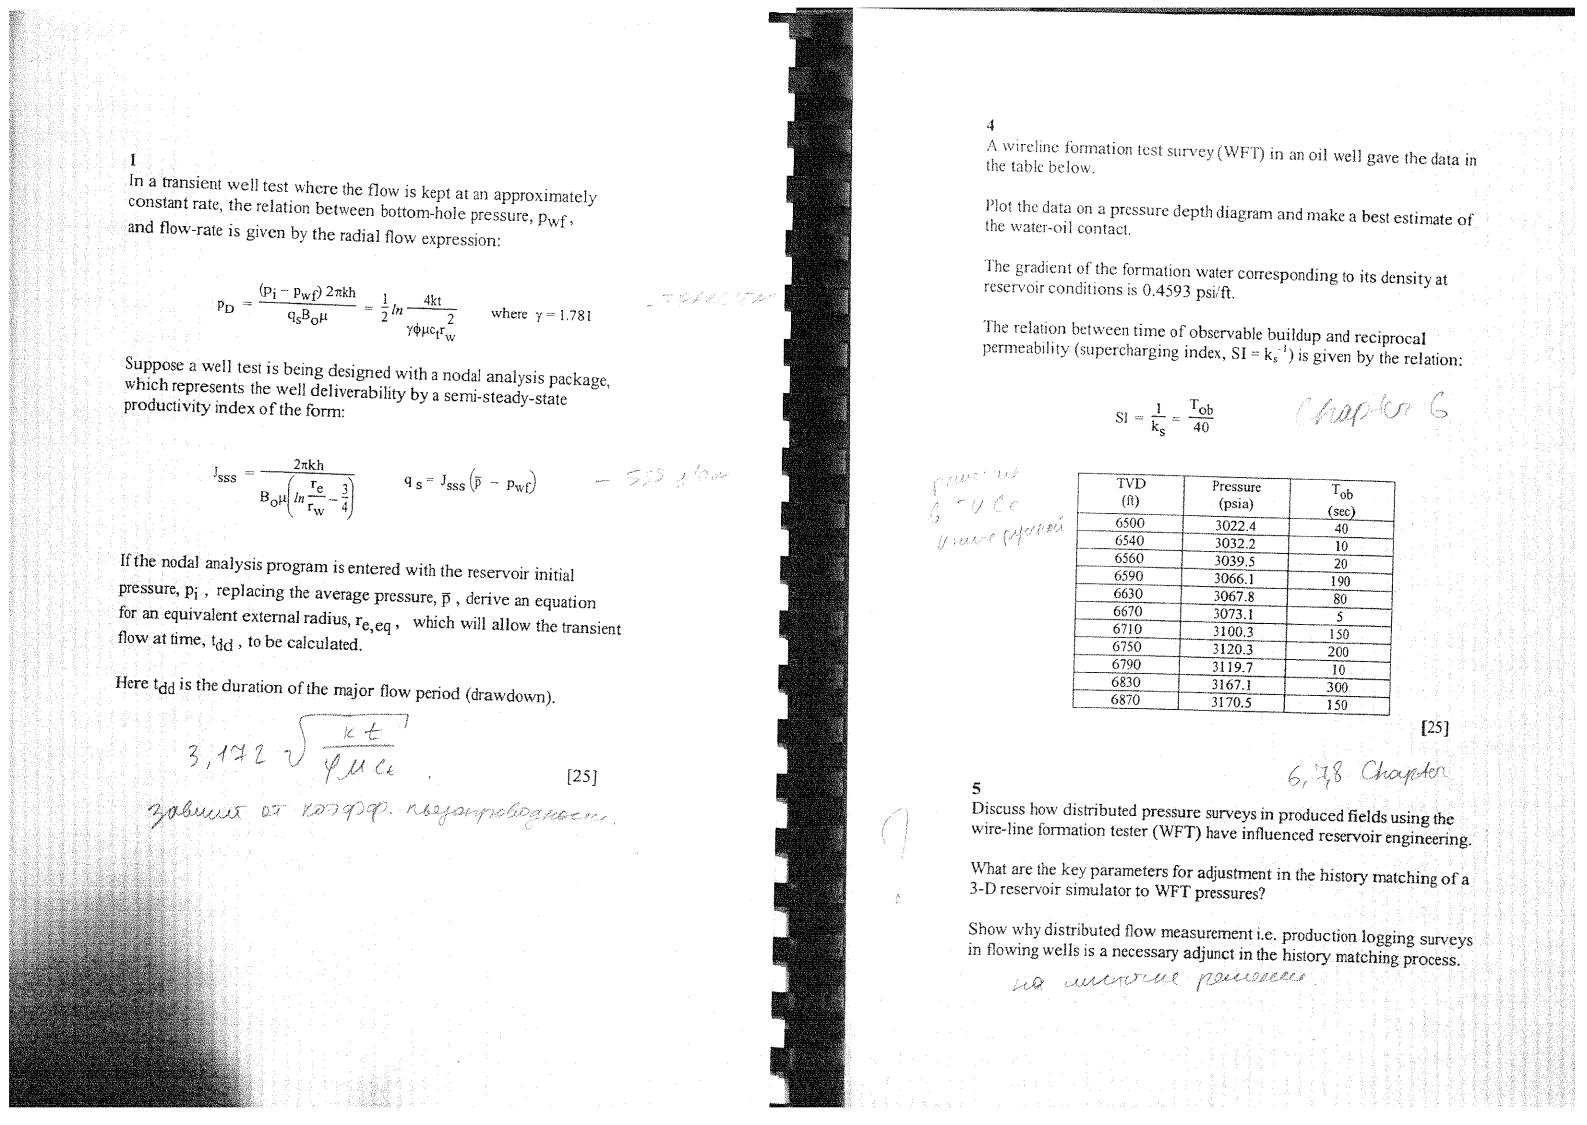 1
In a transient well test where the flow is kept at an approximately
constant rate, the relation between bottom-hole pressure, p_wf ,
and flow-rate is given by the radial flow expression:
p_D = (p_i − p_wf) 2πkh / q_s B_o μ = 1/2 ln 4kt / γϕμc_t r_w^2 where γ = 1.781
Suppose a well test is being designed with a nodal analysis package,
which represents the well deliverability by a semi-steady-state
productivity index of the form:
J_sss = 2πkh / B_o μ (ln r_e / r_w − 3/4) q_s = J_sss (p̄ − p_wf)
If the nodal analysis program is entered with the reservoir initial
pressure, p_i , replacing the average pressure, p̄ , derive an equation
for an equivalent external radius, r_e,eq , which will allow the transient
flow at time, t_dd , to be calculated.
Here t_dd is the duration of the major flow period (drawdown).
3,172 √ kt / φμc_t .
[25]
зависит от коэфф. пьезопроводности.
4
A wireline formation test survey (WFT) in an oil well gave the data in
the table below.
Plot the data on a pressure depth diagram and make a best estimate of
the water-oil contact.
The gradient of the formation water corresponding to its density at
reservoir conditions is 0.4593 psi/ft.
The relation between time of observable buildup and reciprocal
permeability (supercharging index, SI = k_s^-1) is given by the relation:
SI = 1 / k_s = T_ob / 40
Chapter 6
TVD (ft) Pressure (psia) T_ob (sec)
6500 3022.4 40
6540 3032.2 10
6560 3039.5 20
6590 3066.1 190
6630 3067.8 80
6670 3073.1 5
6710 3100.3 150
6750 3120.3 200
6790 3119.7 10
6830 3167.1 300
6870 3170.5 150
[25]
6,7,8 Chapter
5
Discuss how distributed pressure surveys in produced fields using the
wire-line formation tester (WFT) have influenced reservoir engineering.
What are the key parameters for adjustment in the history matching of a
3-D reservoir simulator to WFT pressures?
Show why distributed flow measurement i.e. production logging surveys
in flowing wells is a necessary adjunct in the history matching process.
на листочке решение